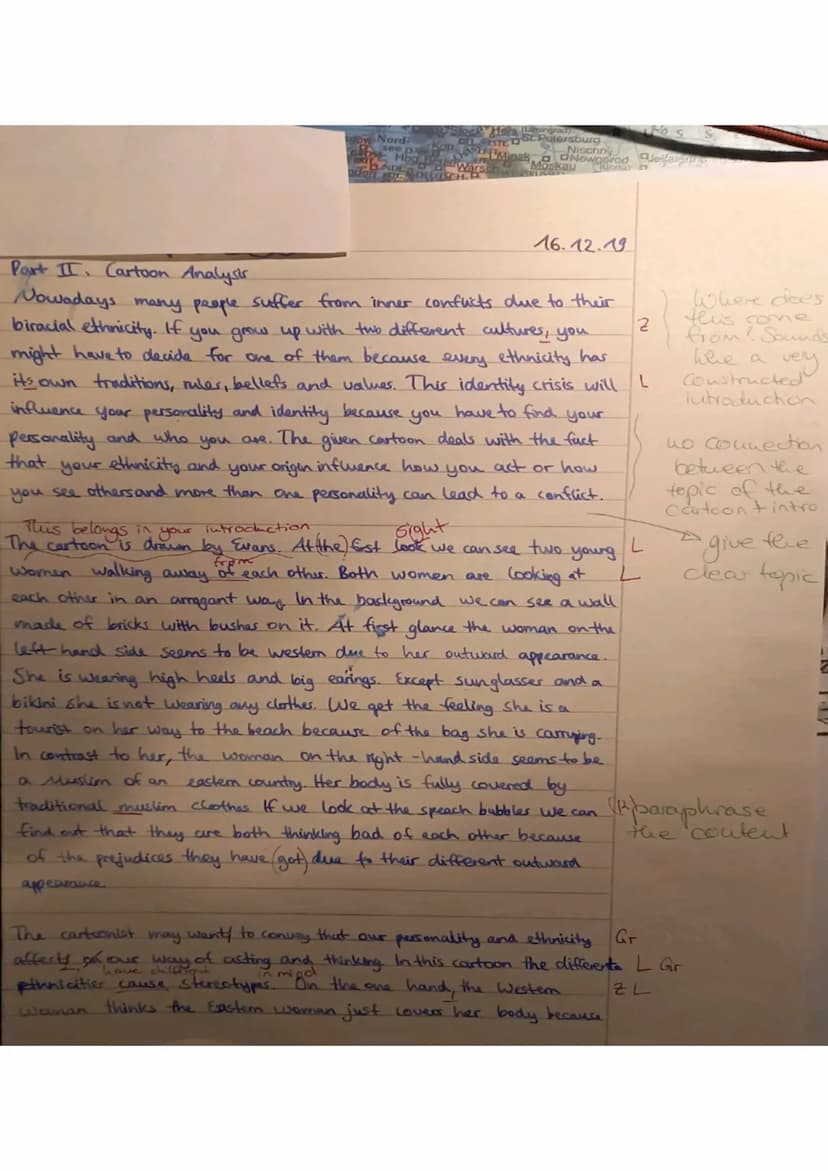 Nord-
St. Petersburg
Nischnij
Minsk
Nowgorod
Hog
Wars
Moskau
16.12.19
Part II. Cartoon Analysis
Nowadays many people suffer from inner conflicts due to their
biracial ethnicity. If you grow up with two different cultures, you
Z
might have to decide for one of them because every ethnicity has
its own traditions, rules, beliefs and values. This identity crisis will
L
influence your personality and identity because you have to find your
personality and who you are. The given cartoon deals with the fact
that your ethnicity and your origin influence how you act or how
you see others and more than one personality can lead to a conflict.
Where does
this come
from? Sounds
like a very
constructed
introduction
no connection
between the
topic of the
cartoon + intro
give the
clear topic
This belongs in your introduction
sight
The cartoon is drawn by Evans. At (the) first look we can see two young
L
from
women walking away of each other. Both women are looking at
L
each other in an arrogant way. In the background we can see a wall
made of bricks with bushes on it. At first glance the woman on the
left-hand side seems to be western due to her outward appearance.
She is wearing high heels and big earings. Except sunglasses and a
bikini she is not wearing any clothes. We get the feeling she is a
tourist on her way to the beach because of the bag she is carrying.
In contrast to her, the woman on the right-hand side seems to be
a Muslim of an eastern country. Her body is fully covered by
traditional muslim clothes. If we look at the speach bubbles we can
(R)
find out that they are both thinking bad of each other because
of the prejudices they have (got) due to their different outward
appearance.
paraphrase
the content
The cartoonist may want to convey that our personality and ethnicity
Gr
affects our way of acting and thinking. In this cartoon the different
L Gr
have different
in mind
ethnicities cause stereotypes. On the one hand, the Western
Z L
woman thinks the Eastern woman just covers her body because